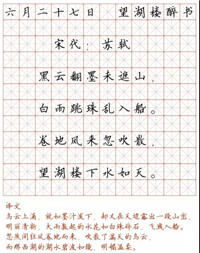 六月二十七日 望湖楼醉书
宋代：苏轼
黑云翻墨未遮山，
白雨跳珠乱入船。
卷地风来忽吹散，
望湖楼下水如天。
译文
乌云上涌，就如墨汁泼下，却又在天边露出一段山峦，
明丽清新，大雨激起的水花如白珠碎石，飞溅入船。
忽然间狂风卷地而来，吹散了满天的乌云，
而那西湖的湖水碧波如镜，明媚温柔。